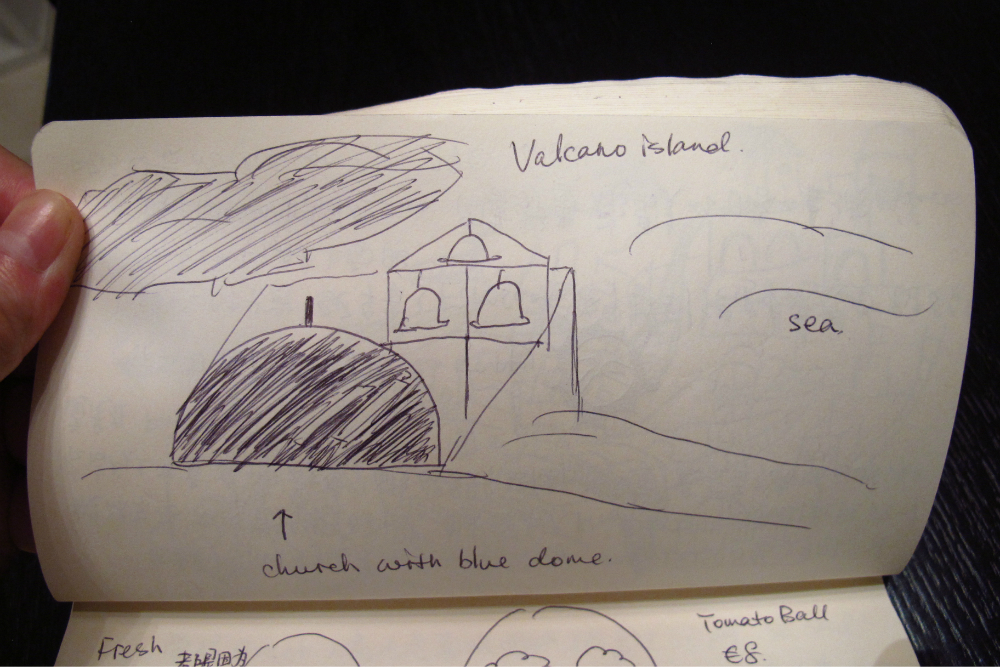 Valcano island.
sea.
church with blue dome.
Tomato Ball
Fresh
€8.